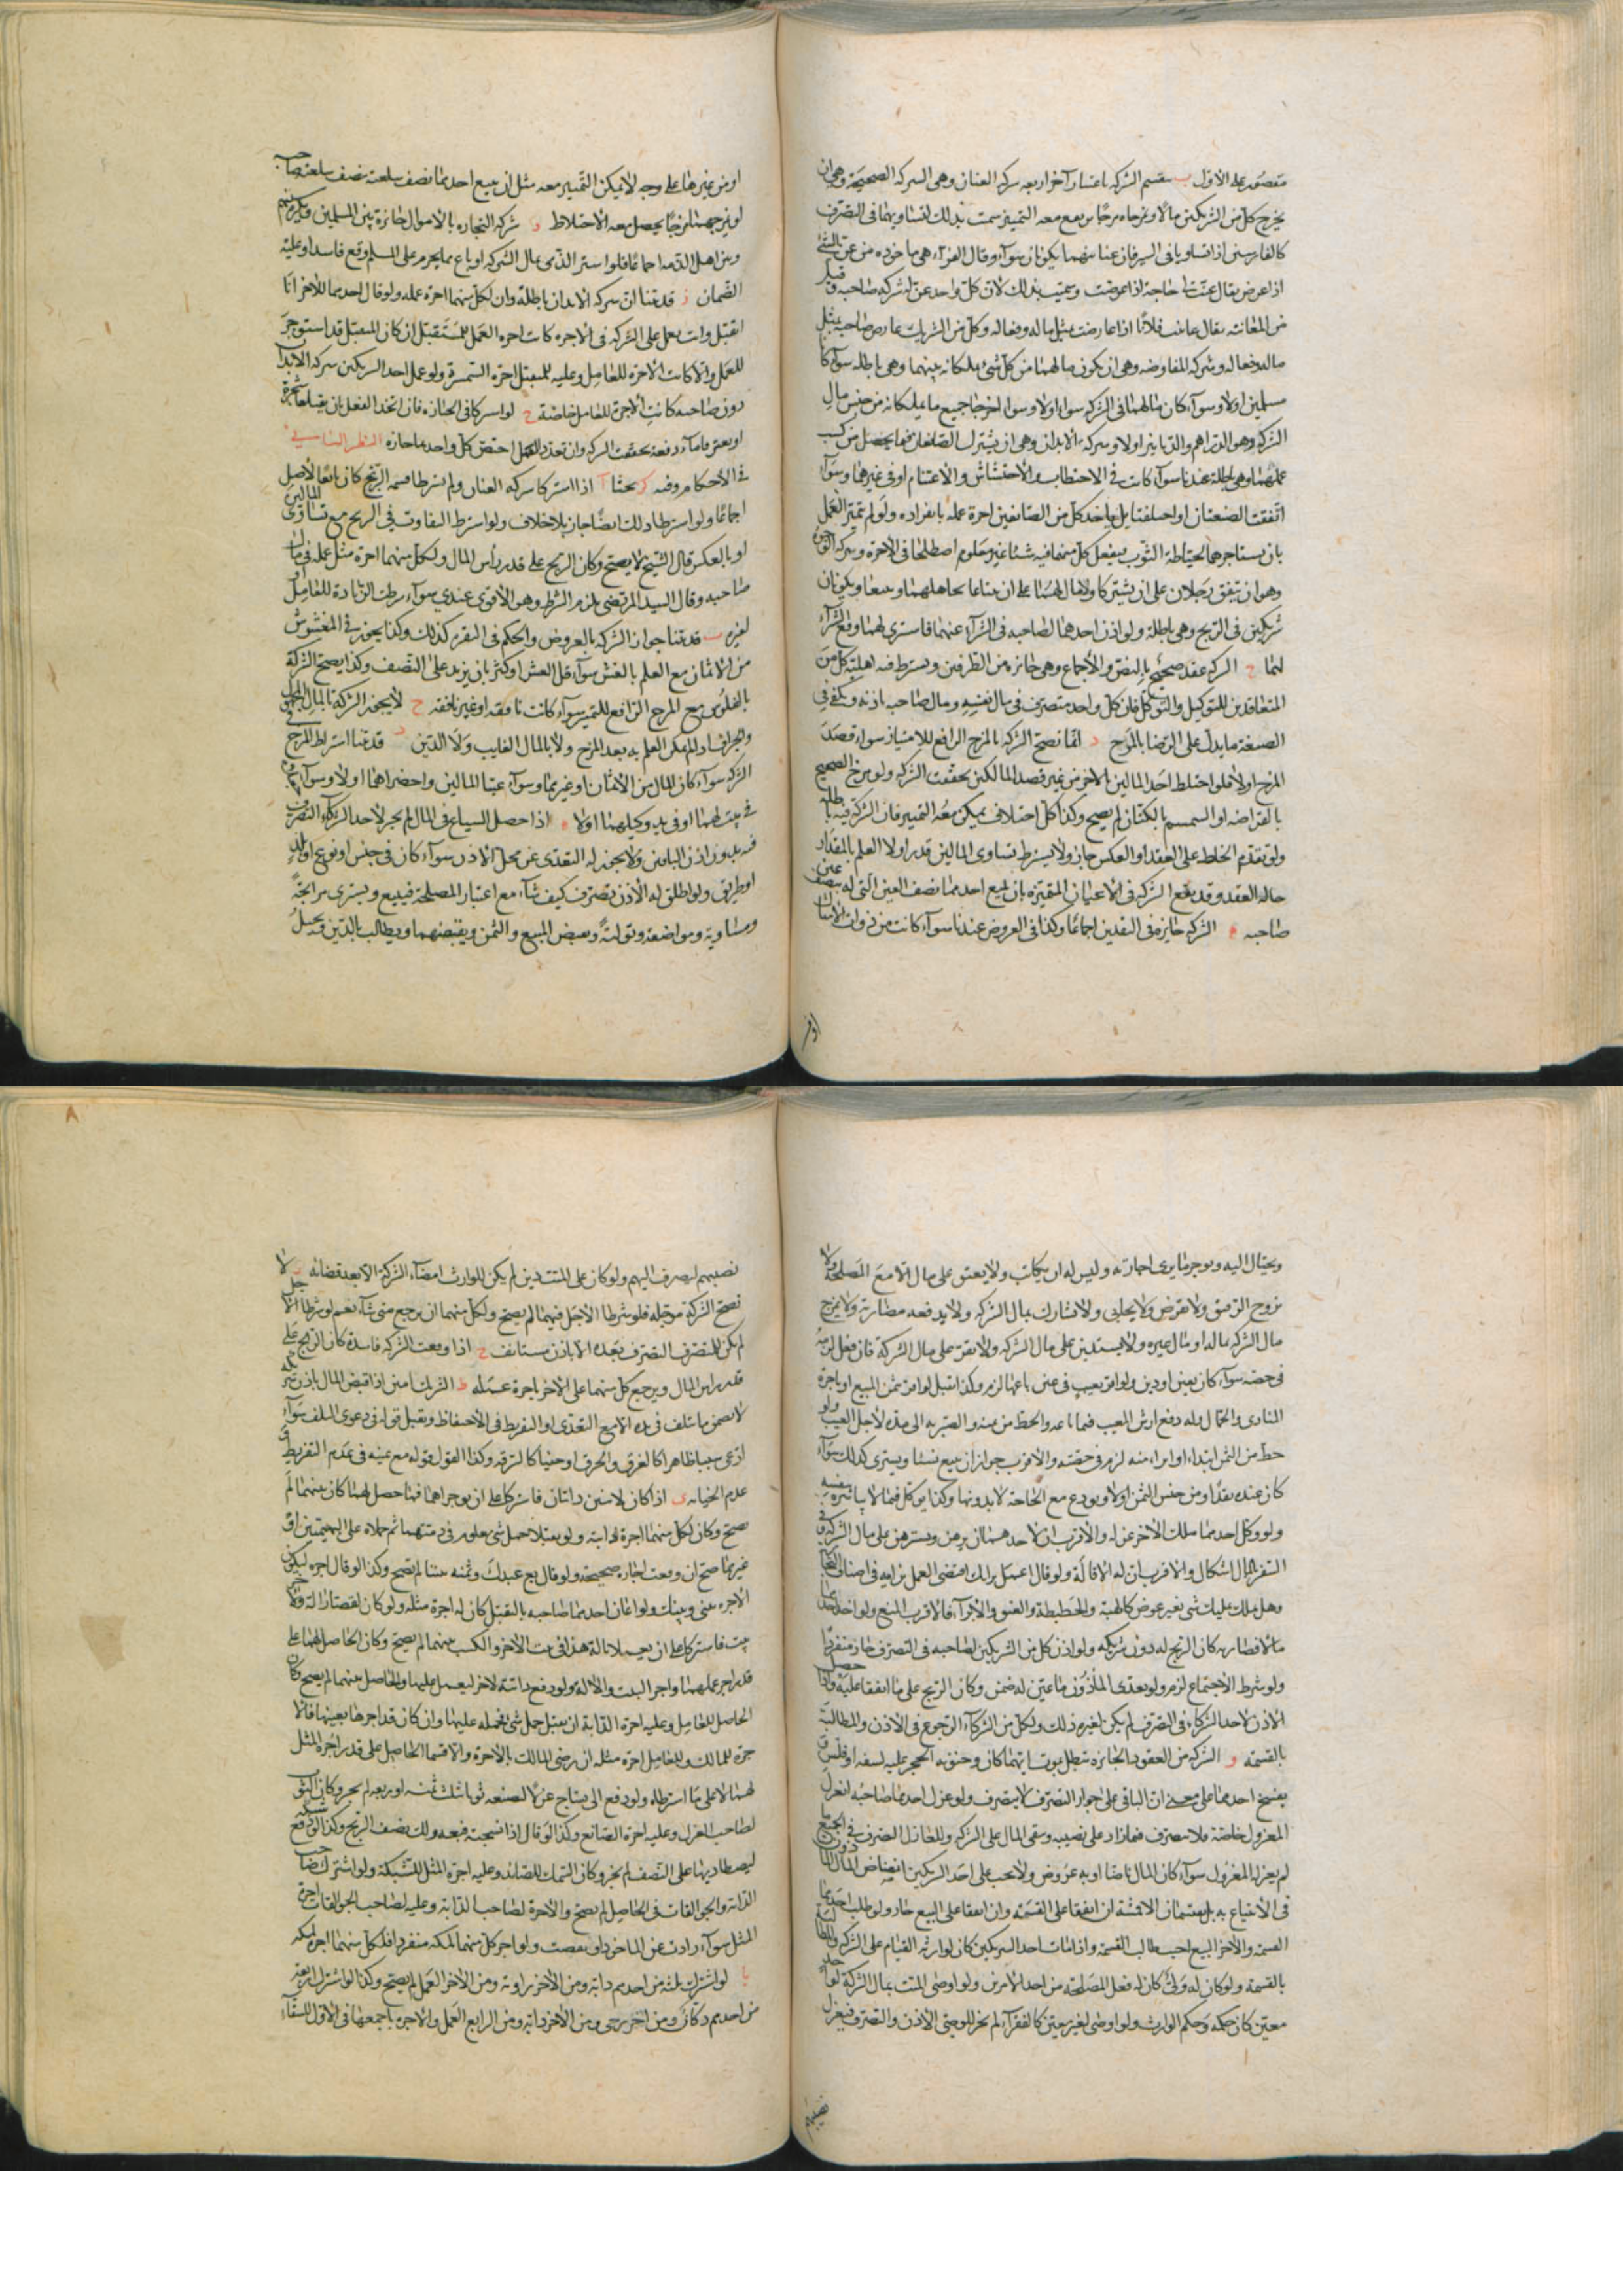 مقصور على الأول ب ينقسم الشركة باعتبار آخر اربعة شركة العنان وهي الشركة الصحيحة وهي ان
يخرج كل من الشريكين مالا ويمزجاه مزجا يرتفع معه التميز سميت بذلك لتساويهما في التصرف
كالفارسين اذا تساويا في السير فان عنانيهما يكونان سواء وقال الفراء هي ماخوذة من عن الشيء
اذا عرض يقال عنت لي حاجة اذا عرضت وسميت بذلك لان كل واحد عن له شركة صاحبه وقيل
من المعاننة يقال عاننت فلانا اذا عارضته بمثل ماله وفعاله وكل من الشريكين يعارض صاحبه بمثل
ماله وفعاله وشركة المفاوضة وهي ان يكون مالهما من كل شيء يملكانه بينهما وهي باطلة سواء كانا
مسلمين اولا وسواء كان مالهما في الشركة سواء اولا وسواء اخرجا جميع ما يملكانه من جنس مال
الشركة وهو الدراهم والدنانير اولا وشركة الابدان وهي ان يشترك الصانعان فيما يحصل من كسب
عملهما وهي باطلة عندنا سواء كانت في الاحتطاب والاحتشاش والاغتنام او في غيرهما وسواء
اتفقت الصنعتان او اختلفتا بل ياخذ كل من الصانعين اجرة عمله بانفراده ولو لم يتميز العمل
بان يستاجرهما لخياطة الثوب فيفعل كل منهما فيه شيئا غير معلوم اصطلحا في الاجرة وشركة الوجوه
وهو ان يتفق رجلان على ان يشتركا ولا مال لهما على ان يبتاعا بجاههما ويبيعا ويكونان
شريكين في الربح وهي باطلة ولو اذن احدهما لصاحبه في الشراء عنهما فاشترى لهما وقع الشراء
لهما ج الشركة عقد صحيح بالنص والاجماع وهي جائزة من الطرفين ويشترط فيه اهلية كل من
المتعاقدين للتوكيل والتوكل فان كل واحد متصرف في مال نفسه ومال صاحبه باذنه ويكفي في
الصيغة ما يدل على الرضا بالمزج د انما تصح الشركة بالمزج الرافع للامتياز سواء قصدا
المزج اولا فلو اختلط احد المالين بالاخر من غير قصد المالكين تحققت الشركة ولو مزج الصحيح
بالقراضة او السمسم بالكتان لم يصح وكذا كل اختلاف يمكن معه التمييز فان الشركة فيه باطلة
ولو تقدم الخلط على العقد او العكس جاز ولا يشترط تساوي المالين قدرا ولا العلم بالمقدار
حالة العقد وقد يقع الشركة في الاعيان المتميزة بان يبيع احدهما نصف العين التي له بنصف عين
صاحبه ه الشركة جايزة في النقدين اجماعا وكذا في العروض عندنا سواء كانت من ذوات الامثال
او من
او من غيرها على وجه لا يمكن التمييز معه مثل ان يبيع احدهما نصف سلعته بنصف سلعة صاحبه
او يمزجهما مزجا يحصل معه الاختلاط و شركة التجارة بالاموال جائزة بين المسلمين ويكره بينهم
وبين اهل الذمة اجماعا فلو اشترى الذمي بمال الشركة او باع بما يحرم على المسلم وقع فاسدا وعليه
الضمان ز قد بينا ان شركة الابدان باطلة وان لكل منهما اجرة عمله ولو قال احدهما للاخر انا
اتقبل وانت تعمل على الشركة في الاجرة كانت اجرة العمل للمتقبل ان كان المتقبل قد استوجر
للعمل والا كانت الاجرة للعامل وعليه للمتقبل اجرة السمسرة ولو عمل احد الشريكين شركة الابدان
دون صاحبه كانت الاجرة للعامل خاصة ح لو اشتركا في الحيازة فان اتحد الفعل بان يقلعا شجرة
او يغترفا ماء دفعة تحققت الشركة وان تعدد العمل اختص كل واحد بما حازه النظر الثاني
في الاحكام وفيه بحثا ا اذا اشتركا شركة العنان ولم يشترطا قسمة الربح كان تابعا لاصل المالين
اجماعا ولو اشترطا ذلك ايضا جاز بلا خلاف ولو اشترطا التفاوت في الربح مع تساوي
او بالعكس قال الشيخ لا يصح وكان الربح على قدر راس المال ولكل منهما اجرة مثل عمله في مال
صاحبه وقال السيد المرتضى يلزم الشرط وهو الاقوى عندي سواء شرطت الزيادة للعامل او
لغيره ب قد بينا جواز الشركة بالعروض والحكم في النقرة كذلك وكذا يجوز في المغشوش
من الاثمان مع العلم بالغش سواء قل الغش او كثر بان يزيد على النصف وكذا يصح الشركة
بالفلوس مع المزج الرافع للتميز سواء كانت نافقة او غير نافقة ج لا يجوز الشركة بالمال المجهول
والجزاف اذا لم يمكن العلم به بعد المزج ولا بالمال الغايب ولا الدين د قد بينا اشتراط المزج في
الشركة سواء كان المال من الاثمان او غيرهما وسواء عينا المالين واحضراهما اولا وسواء كان
في بيت لهما او في يد وكيلهما اولا ه اذا حصل الشياع في المال لم يجز لاحد الشركاء التصرف
فيه بدون اذن الباقين ولا يجوز له التعدي عن محل الاذن سواء كان في جنس او نوع او بلد
او طريق ولو اطلق له الاذن تصرف كيف شاء مع اعتبار المصلحة فيبيع ويشتري مرابحة
ومساوية ومواضعة وتولية وبعض المبيع والثمن ويقبضهما ويطالب بالدين ويحيل
ويحتال اليه ويوجر ما يرى اجارته وليس له ان يكاتب ولا يعتق على مال الا مع المصلحة ولا
يزوج الرقيق ولا يقرض ولا يحابي ولا يشارك بمال الشركة ولا يدفعه مضاربة ولا يمزج
مال الشركة بماله او مال غيره ولا يستدين على مال الشركة ولا يقر على مال الشركة فان فعل لزمه
في حصته سواء كان بعين او دين ولو اقر بعيب في عين باعها لزم وكذا يقبل لو اقر بثمن المبيع او باجرة
المنادي والحمال وله دفع ارش المعيب فيما باعه والحط من ثمنه والصبر به الى مدة لاجل العيب ولو
حط من الثمن ابتداء او ابراء منه لزم في حصته والاقرب جواز ان يبيع نسئا ويشتري كذلك سواء
كان عنده نقدا ومن جنس الثمن اولا ويودع مع الحاجة لا بدونها وكذا يوكل فيما لا يباشره بنفسه
ولو وكل احدهما ملك الاخر عزله والاقرب ان لاحدهما ان يرهن ويسترهن على مال الشركة وفي
السفر بالمال اشكال والاقرب ان له الاقالة ولو قال اعمل برايك اقتضى العمل برايه في اصناف التجارة
وهل يملك تمليك شيء بغير عوض كالهبة والحطيطة والعتق والابراء فالاقرب المنع ولو اخذ احدهما
مالا مضاربة كان الربح له دون شريكه ولو اذن كل من الشريكين لصاحبه في التصرف جاز منفردا
ولو شرط الاجتماع لزم ولو تعدى الماذون ما عين له ضمن وكان الربح على ما اتفقا عليه واذا حصل
الاذن لاحد الشركاء في التصرف لم يكن لغيره ذلك ولكل من الشركاء الرجوع في الاذن والمطالبة
بالقسمة و الشركة من العقود الجايزة تبطل بموت ايهما كان وجنونه والحجر عليه لسفه او فلس و
بفسخ احدهما على معنى ان الباقي على جواز التصرف لا يتصرف ولو عزل احدهما صاحبه انعزل
المعزول خاصة فلا يتصرف فيما زاد على نصيبه ويبقى المال على الشركة وللعازل التصرف في الجميع ما
لم يعزله المعزول سواء كان المال ناضا او به عروض ولا يجب على احد الشريكين انضاض المال
في الابتياع به بل يقتسمان الامتعة ان اتفقا على القسمة وان اتفقا على البيع جاز ولو طلب احدهما
القسمة والاخر البيع اجيب طالب القسمة واذا مات احد الشريكين كان لوارثه القيام على الشركة والمطالبة
بالقسمة ولو كان له ولي كان له فعل المصلحة من احد الامرين ولو اوصى الميت بمال الشركة لواحد
معين كان حكمه وحكم الوارث ولو اوصى لغير معين كالفقراء لم يجز للوصي الاذن والتصرف فيعزل
نصيبهم
نصيبهم ليصرف اليهم ولو كان على الميت دين لم يكن للوارث امضاء الشركة الا بعد قضائه ز لا
تصح الشركة موجلة فلو شرطا الاجل فيهما لم يصح ولكل منهما ان يرجع متى شاء نعم لو شرطا الاجل
لم يكن للمتصرف التصرف بعده الا باذن مستانف ح اذا وقعت الشركة فاسدة كان الربح على
قدر راس المال ويرجع كل منهما على الاخر باجرة عمله ط الشريك امين اذا قبض المال باذن شريكه
لا يضمن ما تلف في يده الا مع التعدي او التفريط في الاحتفاظ ويقبل قوله في دعوى التلف سواء
ادعى سببا ظاهرا كالغرق والحرق او خفيا كالسرقة وكذا القول قوله مع يمينه في عدم التفريط و
عدم الخيانة ي اذا كان لاثنين دابتان فاشتركا على ان يوجراهما فيما حصل لهما كان بينهما لم
يصح وكان لكل منهما اجرة دابته ولو تقبلا حمل شيء معلوم في ذمتهما ثم حملاه على البهيمتين او
غيرهما صح ان وقعت اجارة صحيحة ولو قال بع عبدك وثمنه بيننا لم يصح وكذا لو قال اجره ليكون
الاجرة بيني وبينك ولو اعان احدهما صاحبه بالتقبل كان له اجرة مثله ولو كان لقصار الة ولاخر
بيت فاشتركا على ان يعملا بالة هذا في بيت الاخر والكسب بينهما لم يصح وكان الحاصل لهما على
قدر اجر عملهما واجر البيت والالة ولو دفع دابته لاخر ليعمل عليها والحاصل بينهما لم يصح وكان
الحاصل للعامل وعليه اجرة الدابة ان تقبل حمل شيء فحمله عليها وان كان قد اجرها بعينها فالا
جرة للمالك وللعامل اجرة مثله ان رضي المالك بالاجرة والا قسما الحاصل على قدر اجرة المثل
لهما لا على ما اشترطاه ولو دفع الى نساج غزلا لصنعه ثوبا بثلث ثمنه او ربعه لم يجز وكان الثوب
لصاحب الغزل وعليه اجرة الصانع وكذا لو قال اذا نسجته فبعه ولك نصف الربح وكذا لو دفع شبكة
ليصطاد بها على النصف لم يجز وكان السمك للصائد وعليه اجرة المثل للشبكة ولو اشترك صاحب
الدابة والجوالقات في الحاصل لم يصح والاجرة لصاحب الدابة وعليه لصاحب الجوالقات اجرة
المثل سواء زادت عن الماخوذ او نقصت ولو اجر كل منهما ملكه منفردا فلكل منهما اجر ملكه
يا لو اشترك ثلثة من احدهم دابة ومن الاخر راوية ومن الاخر العمل لم يصح وكذا لو اشترك اربعة
من احدهم دكان ومن اخر رحى ومن الاخر دابة ومن الرابع العمل والاجرة باجمعها في الاول للسقاء